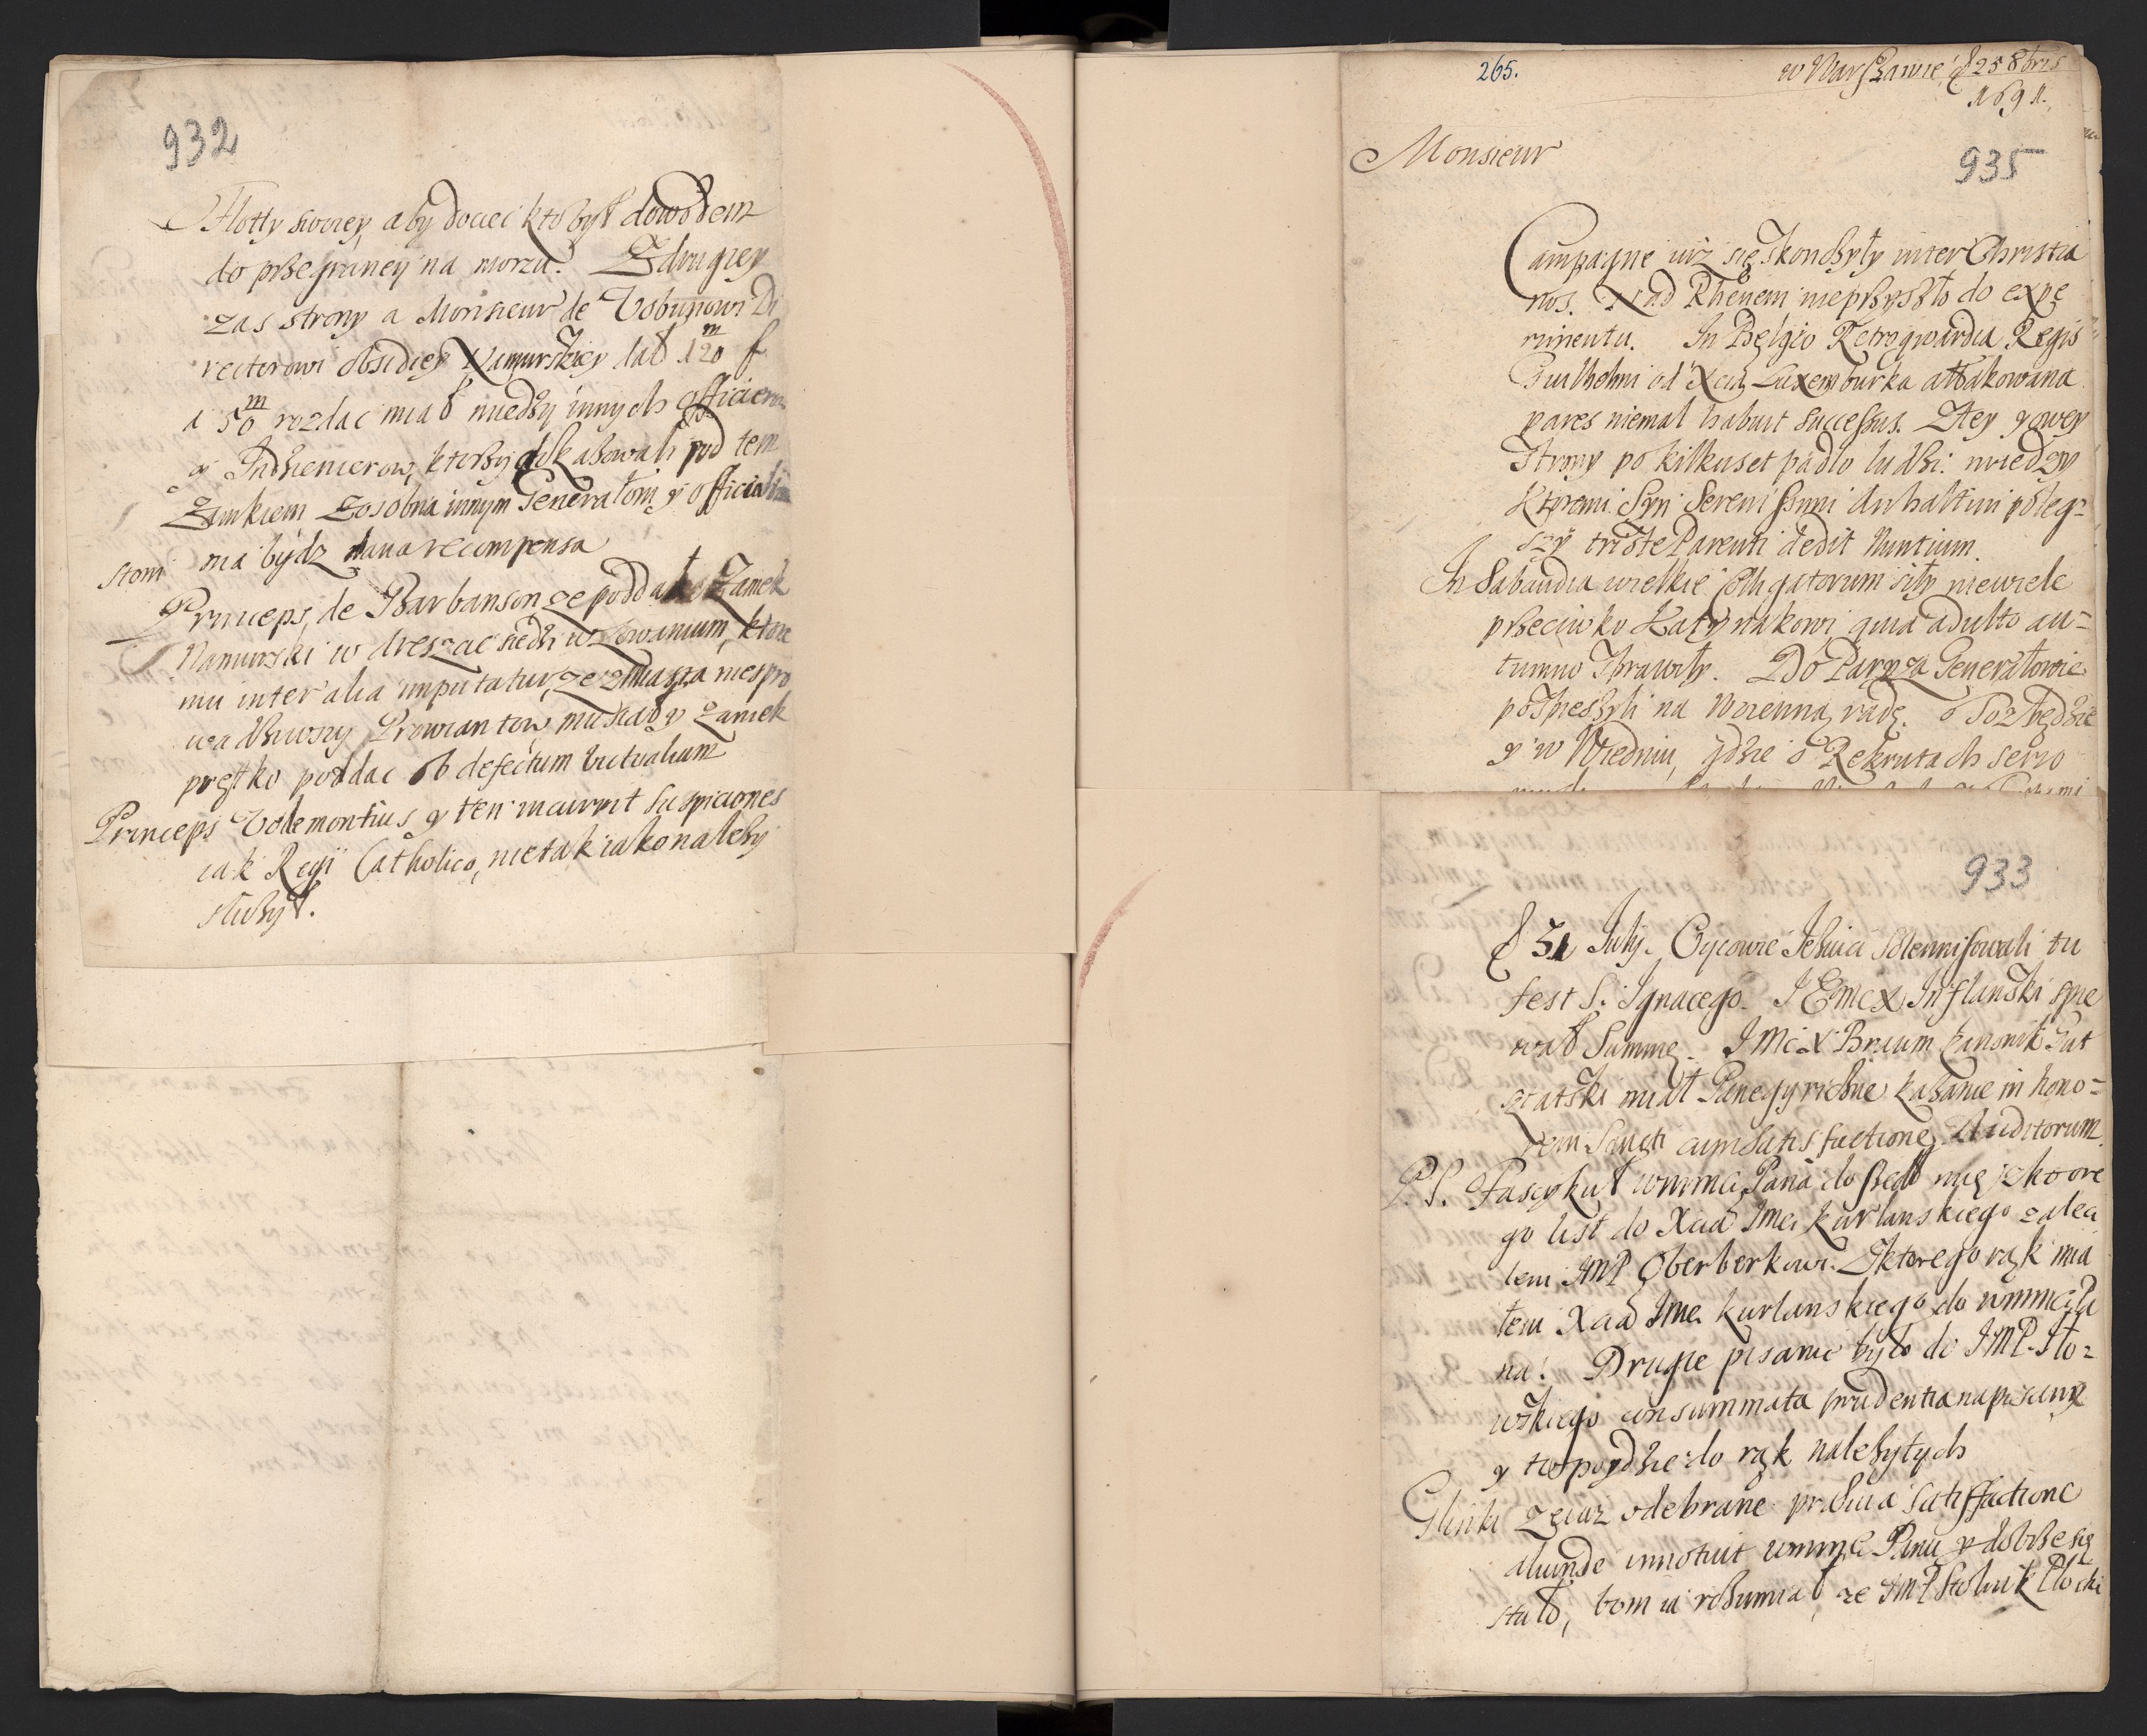 932
Flotty swoiey, aby dociec kto był dowodem
do przegraney na morzu. Z drugiey
zas strony a Monsieur de Vobunowi Di
rectorowi obsidiey Namurskiey dał 120 m f
a 50 m rozdac miał miedzy innych officierow
y Indzienierow, ktorzy pod tem
Zamkiem Zosobna innym Generałom y officialistom
ma bydz dana recompensa
stom
Princeps de Barbanson ze poddał Zamek
Namurski w areszcie siedzi w Lowanium, ktore
mu inter alia imputatur, ze z miasta niespro
wadziwszy Prowiantow, musiał y zamek
prętko poddac ob defectum victualium
Princeps Vodemontius y ten incurrit suspiciones
iak Regi Catholico, nie tak iako nalezy
służył.
265.
w Warszawie d 25 8bris
1691.
Monsieur
935
Campagne iuz się skonczyły inter Christia
nos. Nad Rhenem nieprzyszło do expe
rimentu. In Belgio Retrogwardia Regis
Guilhelmi od Xcia Luxemburka attakowana
pares niemal habuit successus. Z tey y owey
strony po kilkuset padło ludzi: miedzy
ktoremi Syn Serenissimi Anhaltini poleg=
szy triste Parenti dedit Nuntium.
In Sabaudia wielkie Colligatorum siły niewiele
przeciwko Katynakowi quia adulto au=
tumno sprawiły. Do Paryza Generałowie
pospieszyli na Woienną radę. Toz będzie
y w Wiedniu, gdzie o Rekrutach serio
933
d 31 Julij. Oycowie Jesuici solennisowali tu
fest S. Ignacego. J Emc X Inflanski spie
wał Summę. J Mc X Braum kanonik Gut
sztatski miał Panegyriczne kazanie in hono=
rem Sancti cum satisfactione Auditorum.
P.S. Fascykuł wmmci Pana doszedł mię z ktore
go list do Xcia Jmci kurlanskiego zaleci
łem JMP Oberberkowi. Z ktorego rąk mia
łem Xcia Jmci kurlanskiego do wmmci Pa
na. Drugie pisanie było do JMP. Sło=
wskiego consummata prudentia napisany
y to poydzie do rąk nalezytych
Glinki ze iuz odebrane praevia satisfactione
aliunde innotuit wmmci Panu y dobrze się
stało, bom ia rozumiał ze JMP Stolnik Płocki